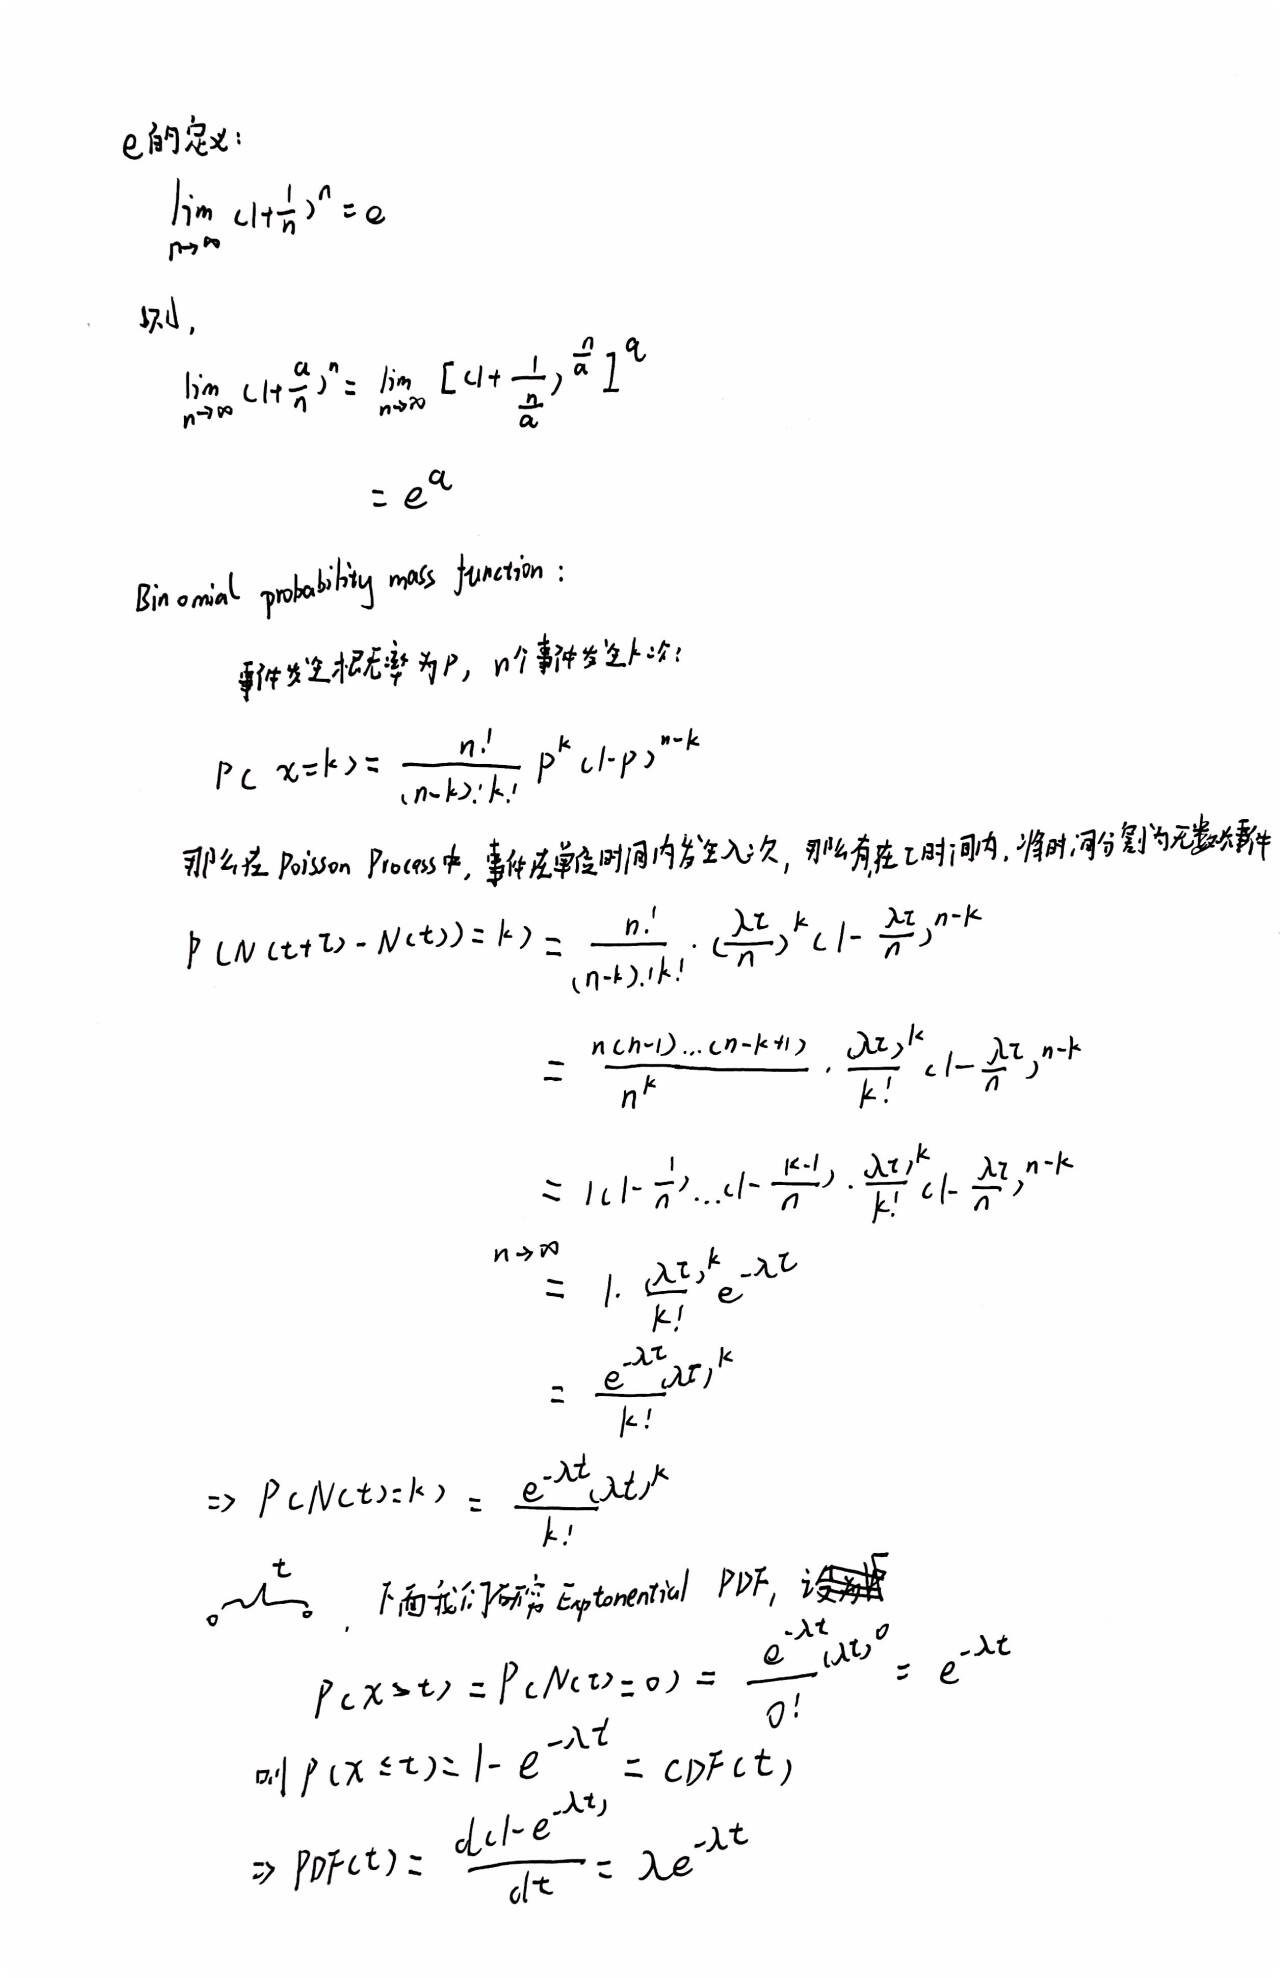 e的定义:
lim n→∞ (1+1/n)^n = e
则,
lim n→∞ (1+a/n)^n = lim n→∞ [(1+1/(n/a))^(n/a)]^a
= e^a
Binomial probability mass function:
事件发生概率为p, n个事件发生k次:
P(x=k) = n!/((n-k)!k!) p^k (1-p)^(n-k)
那么在 Poisson Process中, 事件在单位时间内发生λ次, 那么有在τ时间内, 将时间分割为无数次事件
P(N(t+τ) - N(t)) = k) = n!/((n-k)!k!) · (λτ/n)^k (1 - λτ/n)^(n-k)
= n(n-1)...(n-k+1)/n^k · (λτ)^k/k! (1 - λτ/n)^(n-k)
= 1(1-1/n)...(1-(k-1)/n) · (λτ)^k/k! (1 - λτ/n)^(n-k)
n→∞ = 1 · (λτ)^k/k! e^(-λτ)
= e^(-λτ)(λτ)^k/k!
⇒ P(N(t)=k) = e^(-λt)(λt)^k/k!
t
下面我们研究 Exptonential PDF, 设
P(X>t) = P(N(t)=0) = e^(-λt)(λt)^0/0! = e^(-λt)
则 P(X≤t) = 1 - e^(-λt) = CDF(t)
⇒ PDF(t) = d(1-e^(-λt))/dt = λe^(-λt)